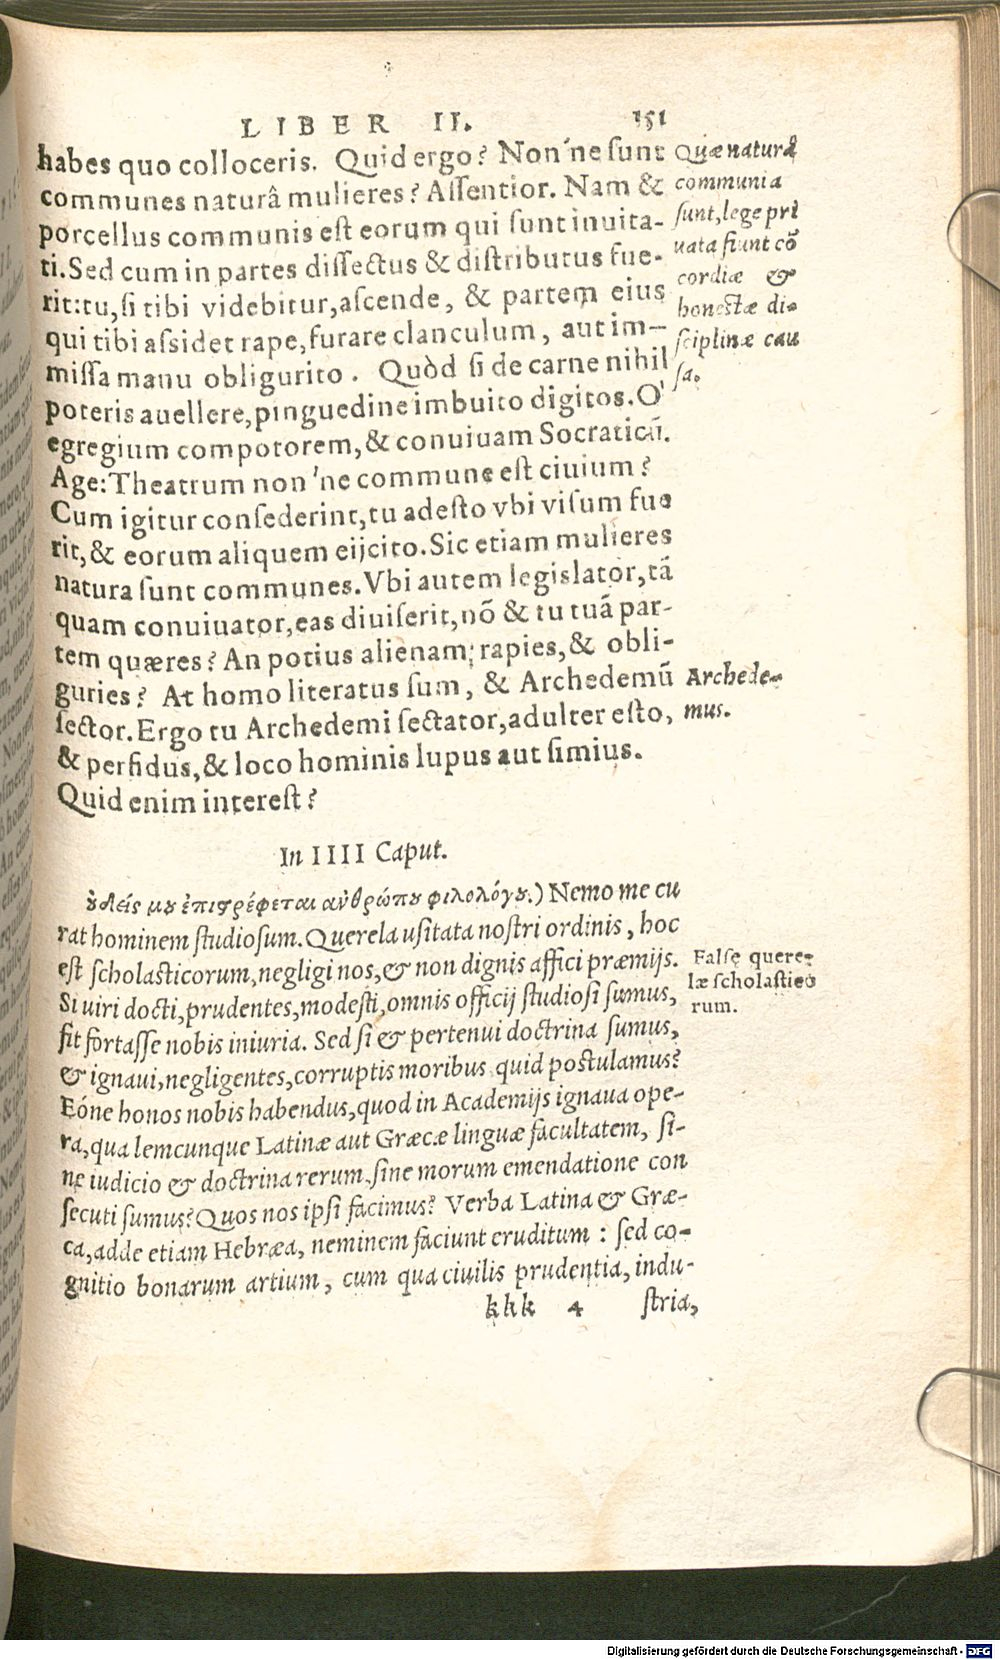 LIBER II. 151
habes quo colloceris. Quid ergo? Non'ne sunt
communes naturâ mulieres? Assentior. Nam &
porcellus communis est eorum qui sunt inuita-
ti. Sed cum in partes dissectus & distributus fue-
rit: tu, si tibi videbitur, ascende, & partem eius
qui tibi assidet rape, furare clanculum, aut im-
missa manu obligurito. Quòd si de carne nihil
poteris auellere, pinguedine imbuito digitos. O'
egregium compotorem, & conuiuam Socraticũ.
Age: Theatrum non'ne commune est ciuium?
Cum igitur consederint, tu adesto vbi visum fue
rit, & eorum aliquem eijcito. Sic etiam mulieres
natura sunt communes. Vbi autem legislator, tã
quam conuiuator, eas diuiserit, nõ & tu tuã par-
tem quæres? An potius alienam; rapies, & obli-
guries? At homo literatus sum, & Archedemũ
sector. Ergo tu Archedemi sectator, adulter esto,
& perfidus, & loco hominis lupus aut simius.
Quid enim interest?
Quæ naturâ
communia
sunt, lege pri
uata fiunt cõ
cordiæ &
honestæ di-
sciplinæ cau
sa.
Archede-
mus.
In IIII Caput.
ȣ̓δείς μȣ ἐπιστρέφεται ἀνθρώπȣ φιλολόγȣ.) Nemo me cu
rat hominem studiosum. Querela usitata nostri ordinis, hoc
est scholasticorum, negligi nos, & non dignis affici præmijs.
Si uiri docti, prudentes, modesti, omnis officij studiosi sumus,
fit fortasse nobis iniuria. Sed si & pertenui doctrina sumus,
& ignaui, negligentes, corruptis moribus quid postulamus?
Eóne honos nobis habendus, quod in Academijs ignaua ope-
ra, qualemcunque Latinæ aut Græcæ linguæ facultatem, si-
ne iudicio & doctrina rerum, sine morum emendatione con
secuti sumus? Quos nos ipsi facimus? Verba Latina & Græ-
ca, adde etiam Hebræa, neminem faciunt eruditum: sed co-
gnitio bonarum artium, cum qua ciuilis prudentia, indu-
Falsę quere-
læ scholastico
rum.
kkk 4 stria,
Digitalisierung gefördert durch die Deutsche Forschungsgemeinschaft - DFG